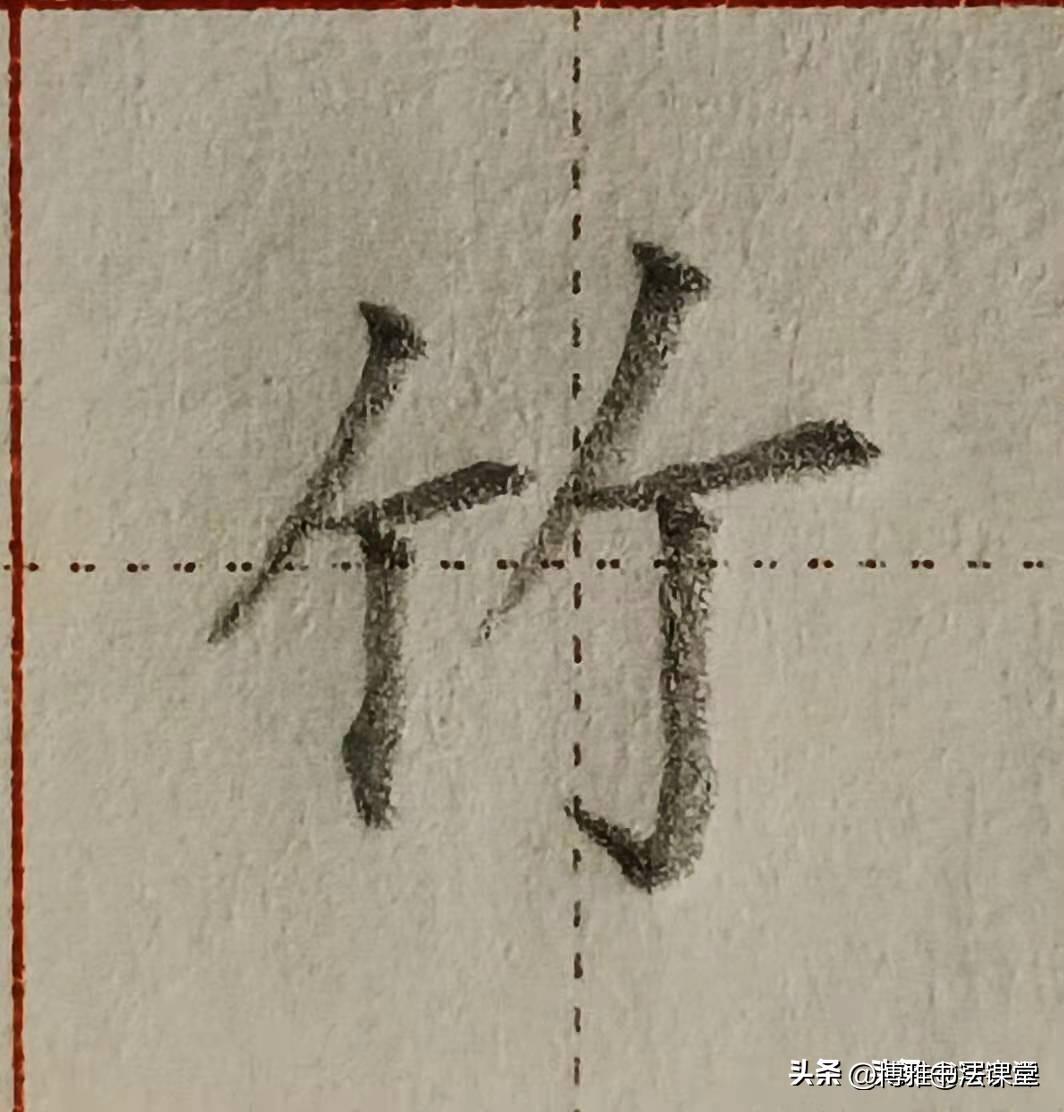 竹
头条 @博雅书法课堂